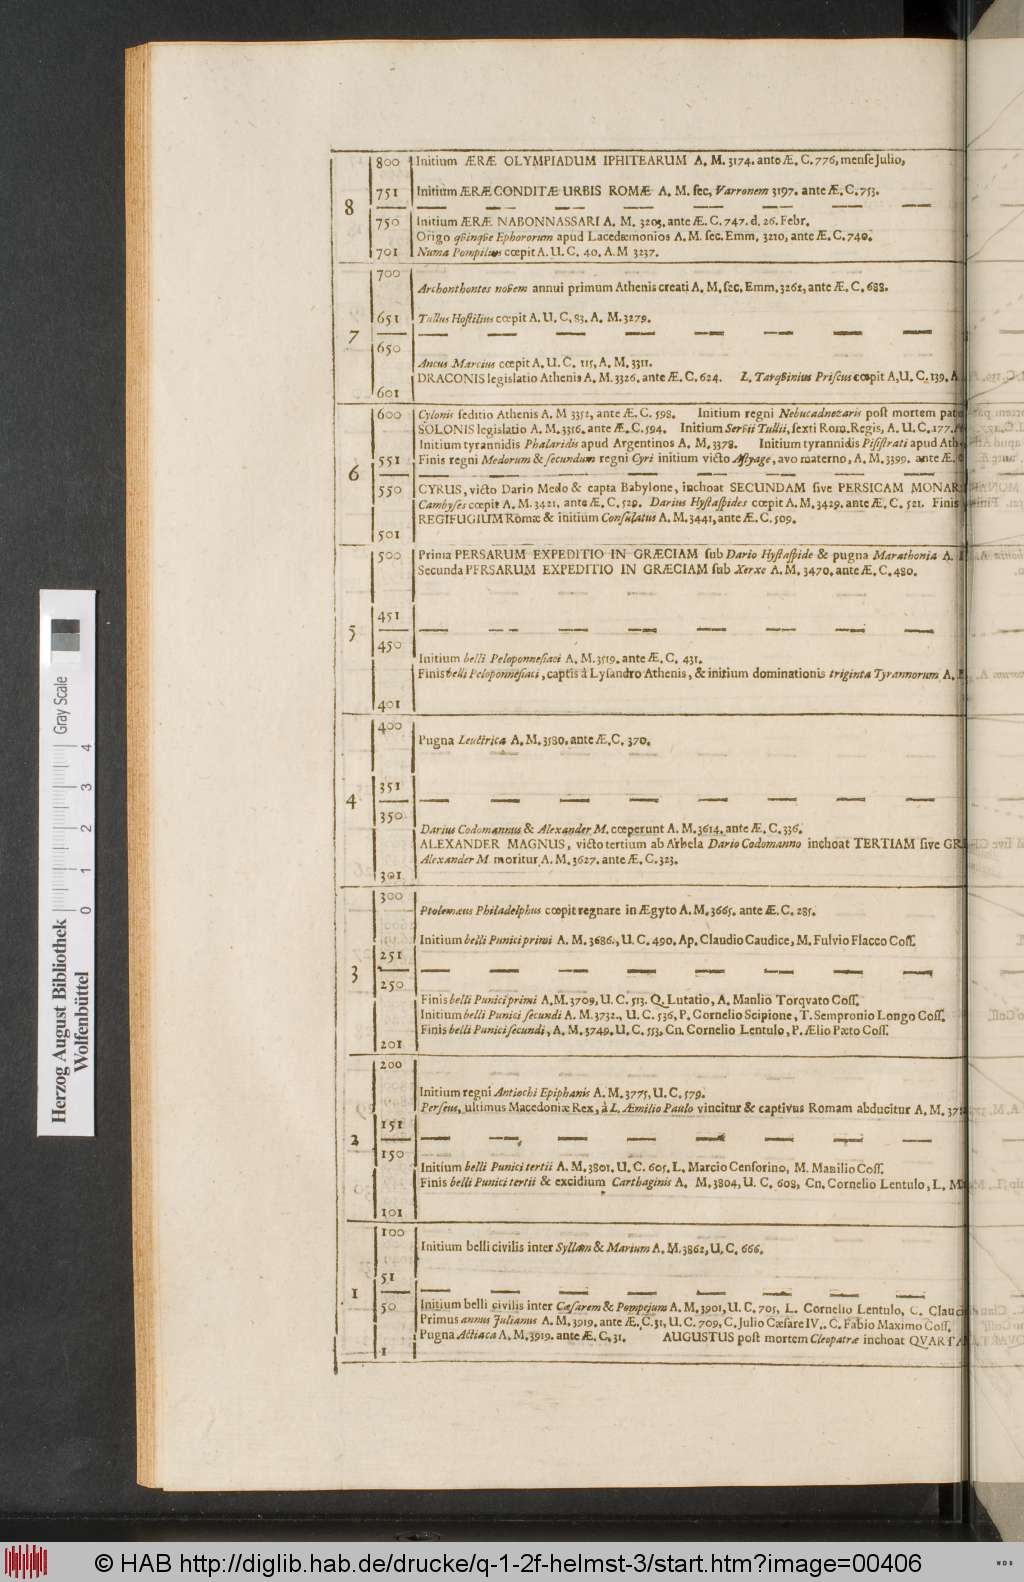 800 Initium ÆRÆ OLYMPIADUM IPHITEARUM A. M. 3174. ante Æ. C. 776, mense Julio,
751 Initium ÆRÆ CONDITÆ URBIS ROMÆ A. M. sec. Varronem 3197. ante Æ. C. 753.
8
750 Initium ÆRÆ NABONNASSARI A. M. 3203, ante Æ. C. 747. d. 26. Febr.
Origo qvinqve Ephororum apud Lacedæmonios A. M. sec. Emm. 3210, ante Æ. C. 740.
701 Numa Pompilius cœpit A. U. C. 40. A. M 3237.
700
Archonthontes novem annui primum Athenis creati A. M. sec. Emm. 3262, ante Æ. C. 688.
651 Tullus Hostilius cœpit A. U. C. 83. A. M. 3279.
7
650
Ancus Marcius cœpit A. U. C. 115, A. M. 3311.
DRACONIS legislatio Athenis A. M. 3326. ante Æ. C. 624. L. Tarqvinius Priscus cœpit A. U. C. 139. A
601
600 Cylonis seditio Athenis A. M 3352, ante Æ. C. 598. Initium regni Nebucadnezaris post mortem pat
SOLONIS legislatio A. M. 3356. ante Æ. C. 594. Initium Servii Tullii, sexti Rom. Regis, A. U. C. 177.
Initium tyrannidis Phalaridis apud Argentinos A. M. 3378. Initium tyrannidis Pisistrati apud Ath
551 Finis regni Medorum & secundum regni Cyri initium victo Astyage, avo materno, A. M. 3399. ante Æ.
6
550 CYRUS, victo Dario Medo & capta Babylone, inchoat SECUNDAM sive PERSICAM MONAR
Cambyses cœpit A. M. 3421, ante Æ. C. 529. Darius Hystaspides cœpit A. M. 3429. ante Æ. C. 521. Finis
REGIFUGIUM Romæ & initium Consulatus A. M. 3441, ante Æ. C. 509.
501
500 Prima PERSARUM EXPEDITIO IN GRÆCIAM sub Dario Hystaspide & pugna Marathonia A.
Secunda PERSARUM EXPEDITIO IN GRÆCIAM sub Xerxe A. M. 3470, ante Æ. C. 480.
451
5
450
Initium belli Peloponnesiaci A. M. 3519. ante Æ. C. 431.
Finis belli Peloponnesiaci, captis à Lysandro Athenis, & initium dominationis triginta Tyrannorum A.
401
400
Pugna Leuctrica A. M. 3580. ante Æ. C. 370.
351
4
350
Darius Codomannus & Alexander M. cœperunt A. M. 3614. ante Æ. C. 336.
ALEXANDER MAGNUS, victo tertium ab Arbela Dario Codomanno inchoat TERTIAM sive GR
Alexander M moritur A. M. 3627. ante Æ. C. 323.
301
300
Ptolemæus Philadelphus cœpit regnare in Ægyto A. M. 3665. ante Æ. C. 285.
Initium belli Punici primi A. M. 3686., U. C. 490. Ap. Claudio Caudice, M. Fulvio Flacco Coss.
251
3
250
Finis belli Punici primi A. M. 3709, U. C. 513. Q. Lutatio, A. Manlio Torqvato Coss.
Initium belli Punici secundi A. M. 3732., U. C. 536, P. Cornelio Scipione, T. Sempronio Longo Coss.
Finis belli Punici secundi, A. M. 3749. U. C. 553, Cn. Cornelio Lentulo, P. Ælio Pæto Coss.
201
200
Initium regni Antiochi Epiphanis A. M. 3775, U. C. 579.
Perseus, ultimus Macedoniæ Rex, à L. Æmilio Paulo vincitur & captivus Romam abducitur A. M. 37
151
2
150
Initium belli Punici tertii A. M. 3801. U. C. 605. L. Marcio Censorino, M. Manilio Coss.
Finis belli Punici tertii & excidium Carthaginis A. M. 3804, U. C. 608, Cn. Cornelio Lentulo, L. M
101
100
Initium belli civilis inter Syllam & Marium A. M. 3862, U. C. 666.
51
1
50 Initium belli civilis inter Cæsarem & Pompejum A. M. 3901, U. C. 705, L. Cornelio Lentulo, C. Clau
Primus annus Julianus A. M. 3919. ante Æ. C. 31, U. C. 709, C. Julio Cæsare IV., C. Fabio Maximo Coss.
Pugna Actiaca A. M. 3919. ante Æ. C. 31. AUGUSTUS post mortem Cleopatræ inchoat QVARTA
1
Herzog August Bibliothek
Wolfenbüttel
0 1 2 3 4
Gray Scale
© HAB http://diglib.hab.de/drucke/q-1-2f-helmst-3/start.htm?image=00406